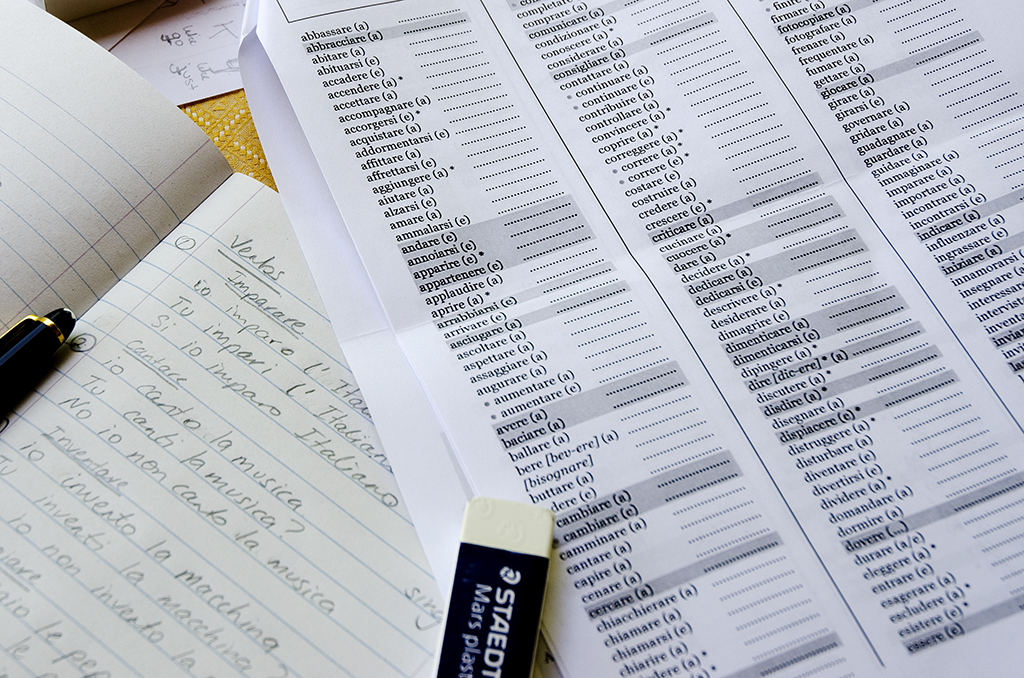 like
go
like
just
①
Verbs
Imparare
io imparo l'Italiano
Tu impari l'Italiano
Si io imparo Italiano
②
cantare
io canto la musica
Tu canti la musica?
No io non canto la musica
sing
Inventare
io invento la macchina
Tu invento la macchina?
io non invento la
STAEDT
Mars plast
abbassare (a)
abbracciare (a)
abitare (a)
abituarsi (e)
accadere (e) *
accendere (a) *
accettare (a)
accompagnare (a)
accorgersi (e) *
acquistare (a)
addormentarsi (e)
affittare (a)
affrettarsi (e)
aggiungere (a) *
aiutare (a)
alzarsi (e)
amare (a)
ammalarsi (e)
andare (e)
annoiarsi (e)
apparire (e) *
appartenere (e)
applaudire (a)
aprire (a) *
arrabbiarsi (e)
arrivare (e)
asciugare (a)
ascoltare (a)
aspettare (a)
assaggiare (a)
augurare (a)
• aumentare (a)
• aumentare (e)
avere (a)
baciare (a)
ballare (a)
bere [bev-ere] (a)
[bisognare]
buttare (a)
cadere (e)
cambiare (a)
cambiare (e)
camminare (a)
cantare (a)
capire (a)
cenare (a)
cercare (a)
chiacchierare (a)
chiamare (a)
chiamarsi (e)
chiarire (a)
completare (a)
comprare (a)
comunicare (a)
condizionare (a)
conoscere (a)
considerare (a)
consigliare (a)
contattare (a)
• continuare (a)
• continuare (e)
contribuire (a)
controllare (a)
convincere (a) *
coprire (a) *
correggere (a) *
• correre (a) *
• correre (e) *
costare (e)
costruire (a)
credere (a)
crescere (e)
criticare (a)
cucinare (a)
cuocere (a) *
dare (a)
decidere (a) *
dedicare (a)
dedicarsi (e)
descrivere (a) *
desiderare (a)
dimagrire (e)
dimenticare (a)
dimenticarsi (e)
dipingere (a) *
dire [dic-ere] (a) *
discutere (a) *
disdire (a) *
disegnare (a)
dispiacere (e) *
distruggere (a) *
disturbare (a)
diventare (e)
divertirsi (e)
dividere (a) *
domandare (a)
dormire (a)
dovere
durare (a/e)
eleggere (a) *
entrare (e)
esagerare (a)
escludere (a) *
esistere (e) *
essere (e)
firmare (a)
fotocopiare (a)
fotografare (a)
frenare (a)
frequentare (a)
fumare (a)
gettare (a)
giocare (a)
girare (a)
girarsi (e)
governare (a)
gridare (a)
guadagnare (a)
guardare (a)
guidare (a)
immaginare (a)
imparare (a)
importare (a)
incontrare (a)
incontrarsi (e)
indicare (a)
influenzare (a)
ingrassare (e)
iniziare (a)
innamorarsi
insegnare
interessare